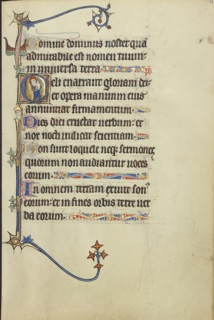 Domine dominus noster quã
admirabile est nomen tuum
in universa terra.
Celi enarrant gloriam dei
et opera manuum eius
annuntiat firmamentum.
Dies diei eructat verbum: et
nox nocti indicat scientiam.
Non sunt loquele neqʒ sermones
quorum non audiantur voces
eorum.
In omnem terram exivit son⁹
eorum: et in fines orbis terre ver
ba eorum.